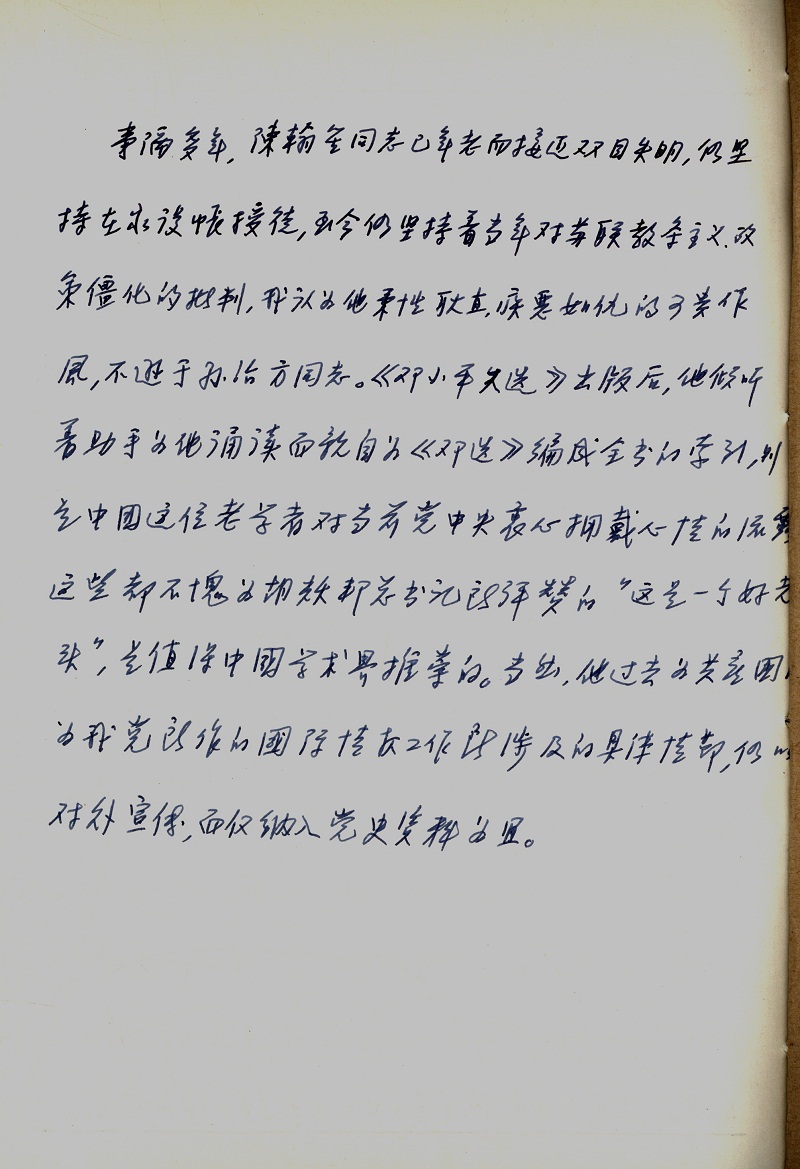 事隔多年,陳翰笙同志已年老而接近双目失明,仍坚
持在家设帐接徒,至今仍坚持着当年对苏联教条主义、政
策僵化的批判,我认为他秉性耿直,疾恶如仇的可贵作
风,不逊于孙冶方同志。《邓小平文选》出版后,他倾听
着助手为他诵读而亲自为《邓选》编成全书的索引,则
是中国这位老学者对当前党中央衷心拥戴心情的流露
这些都不愧为胡耀邦总书记所称赞的"这是一个好老
头",是值得中国学术界推荐的。当然,他过去为共产国
为我党所作的国际情报工作所涉及的具体情节,仍以
对外宣传,而仅纳入党史资料为宜。